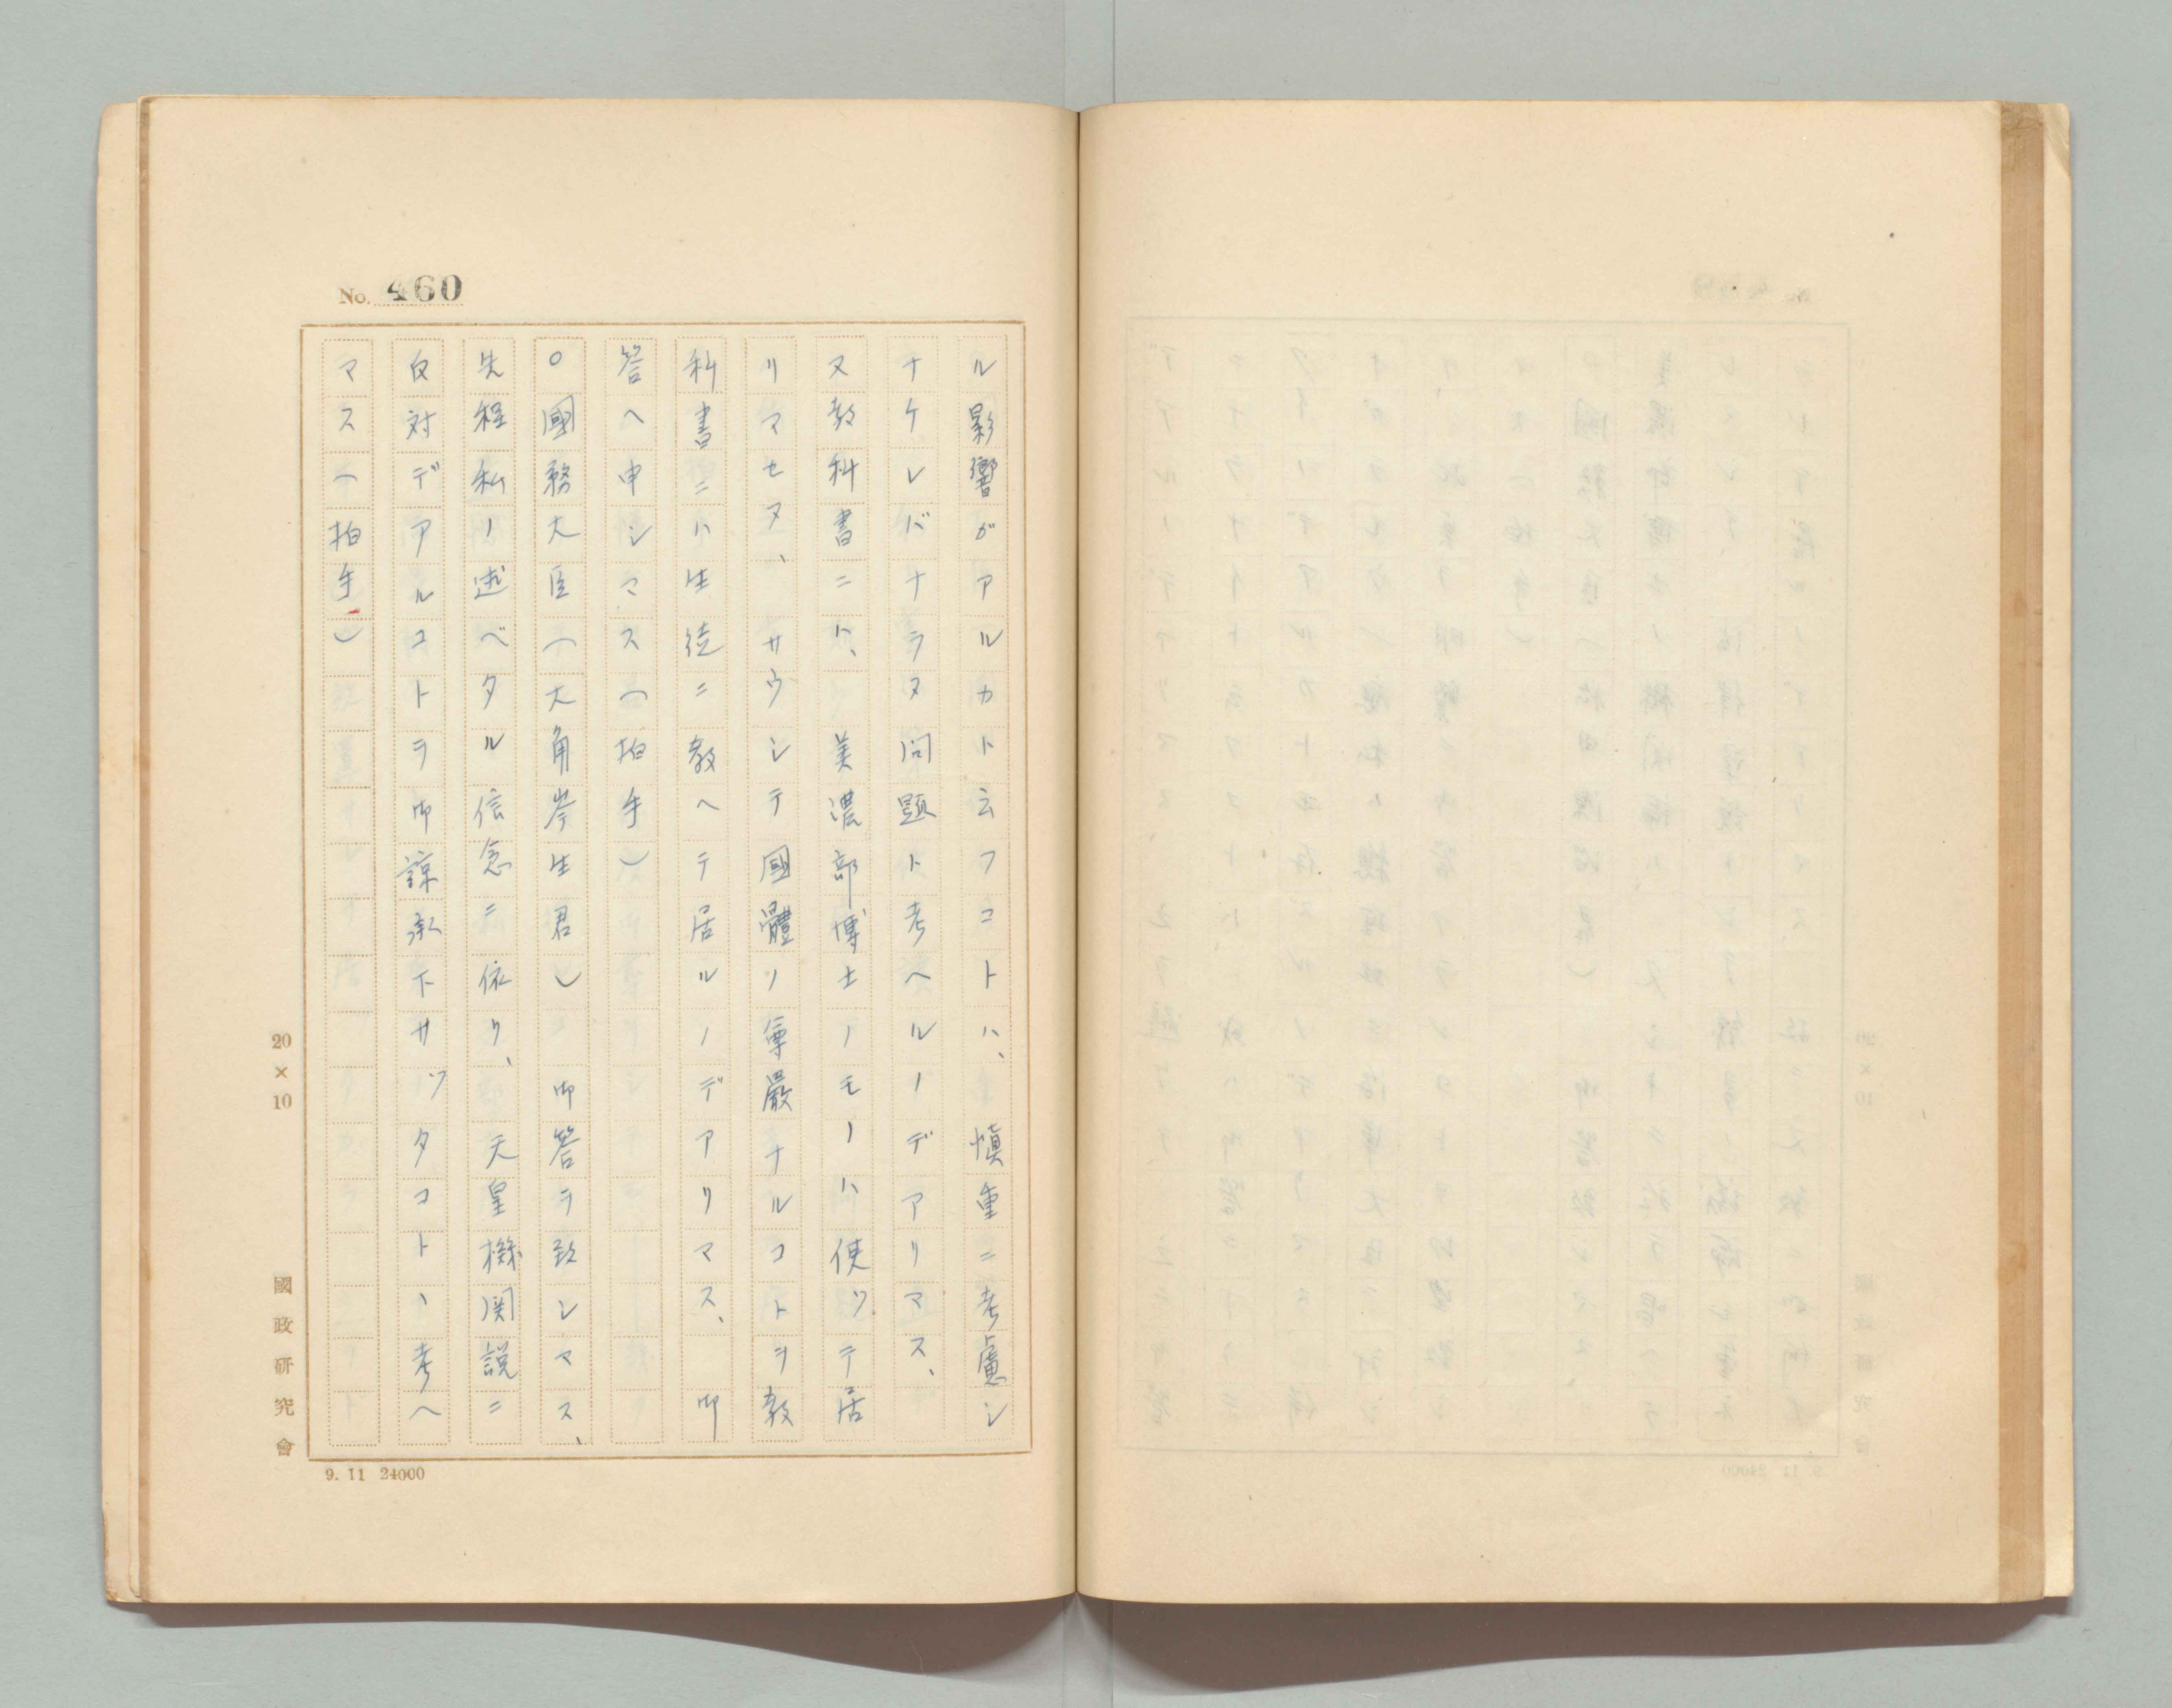 No. 460
ル影響ガアルカト云フコトハ、愼重ニ考慮シ
ナケレバナラヌ問題ト考ヘルノデアリマス、
又教科書ニハ、美濃部博士ノモノハ使ッテ居
リマセヌ、サウシテ國體ノ尊嚴ナルコトヲ教
科書ニハ生徒ニ教ヘテ居ルノデアリマス、御
答ヘ申シマス（拍手）
○國務大臣（大角岑生君）御答ヲ致シマス、
先程私ノ述ベタル信念ニ依リ、天皇機関説ニ
反対デアルコトヲ御諒承下サッタコトヽ考ヘ
マス（拍手）
20×10
國政研究會
9. 11 24000